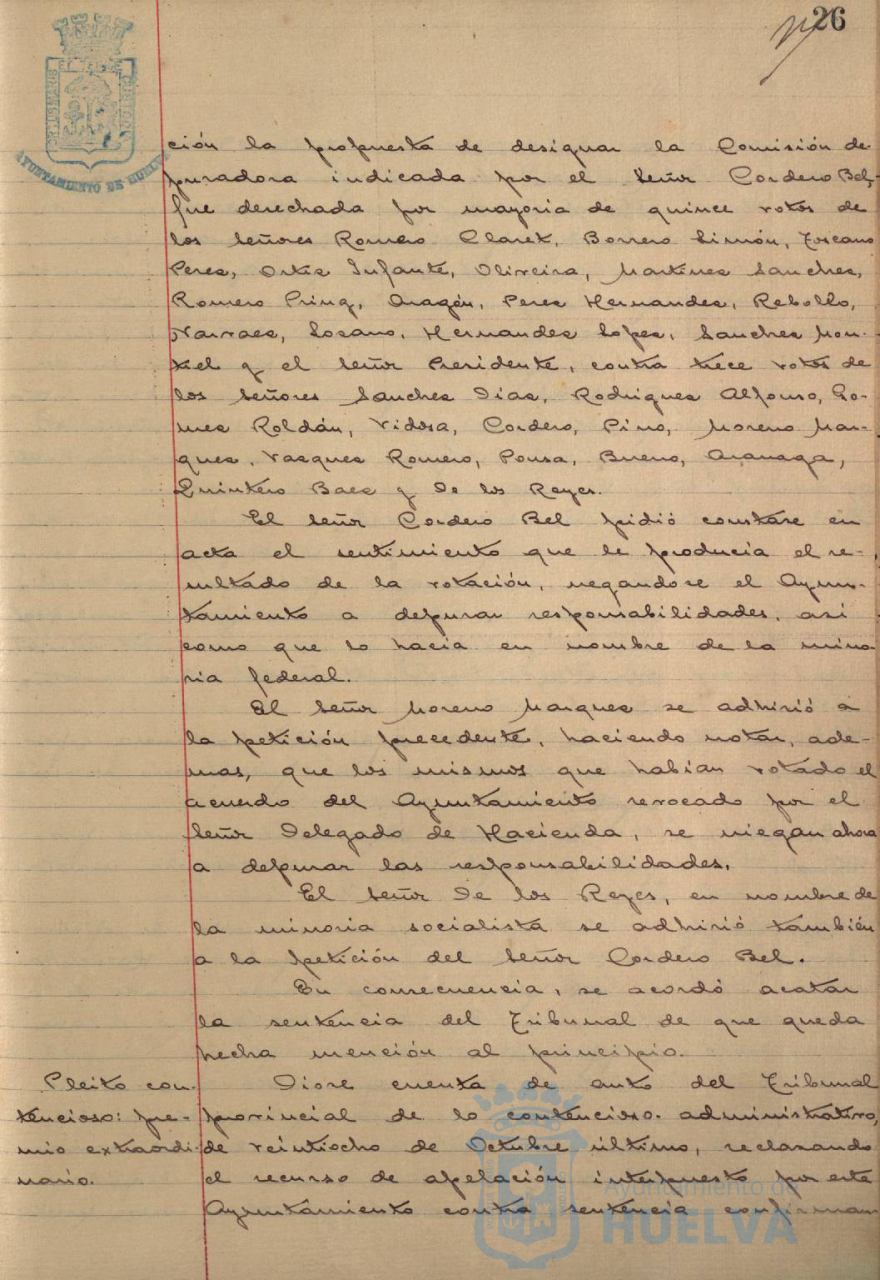 26
AYUNTAMIENTO DE HUELVA
ción la propuesta de designar la Comisión de
puradora indicada por el Señor Cordero Bel,
fue desechada por mayoria de quince votos de
los Señores Romero Claret, Borrero Simón, Toscano
Peres, Ortis Infante, Oliveira, Martines Sanches,
Romero Pring, Aragón, Peres Hernandes, Rebollo,
Narvaes, Losano, Hernandes Lopes, Sanches Mon-
tiel y el Señor Presidente, contra trece votos de
los Señores Sanches Dias, Rodrigues Alfonso, Go-
mes Roldán, Vidosa, Cordero, Pino, Moreno Mar-
ques, Vasques Romero, Ponsa, Bueno, Aranaga,
Quintero Baes y De los Reyes.
El Señor Cordero Bel pidió constase en
acta el sentimiento que le producia el re-
sultado de la votación, negandose el Ayun-
tamiento a depurar responsabilidades, asi
como que lo hacia en nombre de la mino-
ria federal.
El Señor Moreno Marques se adhirió a
la petición precedente, haciendo notar, ade-
mas, que los mismos que habian votado el
acuerdo del Ayuntamiento revocado por el
Señor Delegado de Hacienda, se niegan ahora
a depurar las responsabilidades.
El Señor De los Reyes, en nombre de
la minoria socialista se adhirió también
a la petición del Señor Cordero Bel.
En consecuencia, se acordó acatar
la sentencia del Tribunal de que queda
hecha mención al principio.
Pleito con-
tencioso: pre-
mio extraordi-
nario.
Diose cuenta de auto del Tribunal
provincial de lo contencioso-administrativo,
de veintiocho de Octubre último, reclamando
el recurso de apelación interpuesto por este
Ayuntamiento contra sentencia confirman
Ayuntamiento de
HUELVA